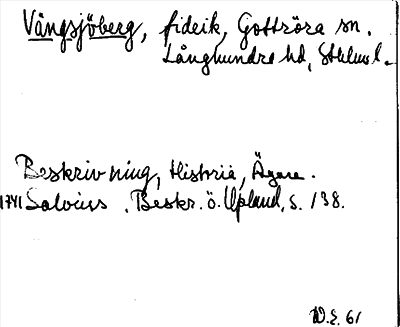 Vångsjöberg, fideik, Gottröra sn.
Långhundra hd, Sthlms l.
Beskrivning, Historia, Ägare.
1741 Salvius. Beskr. ö. Upland, s. 138.
W.E. 61